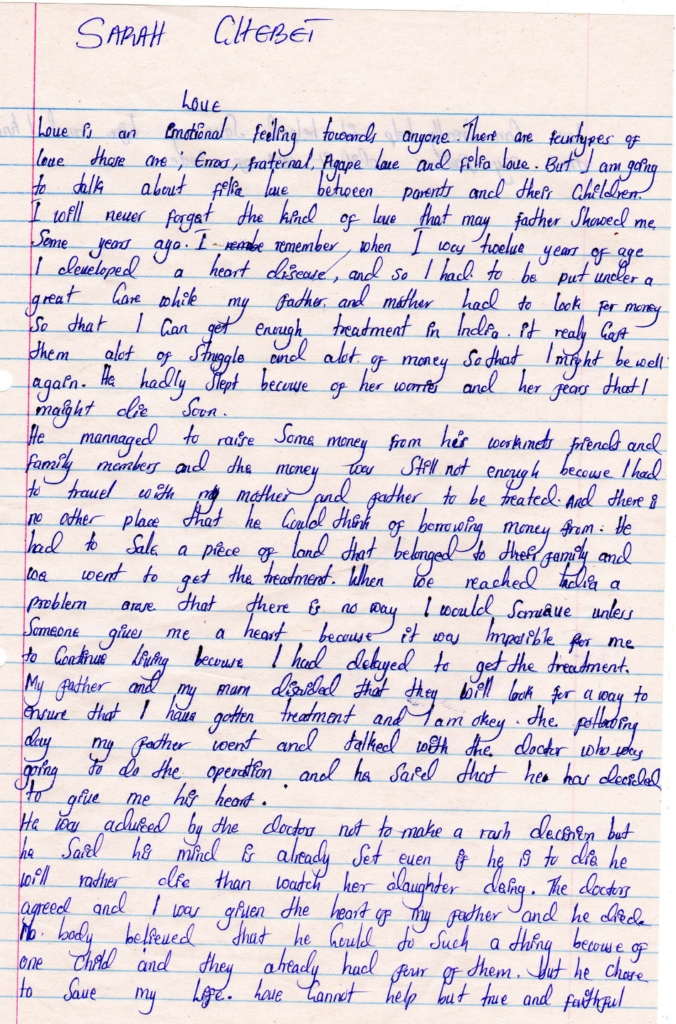 SARAH CHEBET
Love
Love is an Emotional feeling towards anyone. There are fourtypes of
love those are, Erros, fraternal, Agape love and filia love. But I am going
to talk about filia love between parents and their Children.
I will never forget the kind of love that may father Showed me
Some years ago. I remember, when I was twelve years of age
I developed a heart disease, and so I had to be put under a
great Care while my father and mother had to look for money
So that I Can get enough treatment in India. it realy Cost
them alot of Struggle and alot of money So that I might be well
again. He hadly Slept because of her worries and her fears that I
maight die Soon.
He mannaged to raise Some money from his workmets friends and
family members and the money was Still not enough because I had
to travel with my mother and father to be treated. And there is
no other place that he Could think of borrowing money from. He
had to Sale a piece of land that belonged to their family and
we went to get the treatment. When we reached India a
problem arose that there is no way I would Survive unless
Someone gives me a heart because it was Imposible for me
to Continue Living because I had delayed to get the treatment.
My father and my mum dicided that they will look for a way to
ensure that I have gotten treatment and I am okey. the following
day my father went and talked with the doctor who was
going to do the operation and he Saied that he has decided
to give me his heart.
He was adviced by the doctors not to make a rash decision but
he Said his mind is already Set even if he is to die he
will rather die than watch her daughter dieing. The doctors
agreed and I was given the heart of my father and he died.
No body believed that he Could to Such a thing because of
one Child and they already had four of them. but he chose
to Save my Life. Love Cannot help but true and faithful